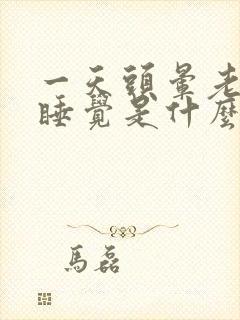 一天頭暈老
睡覺是什麼
馬磊